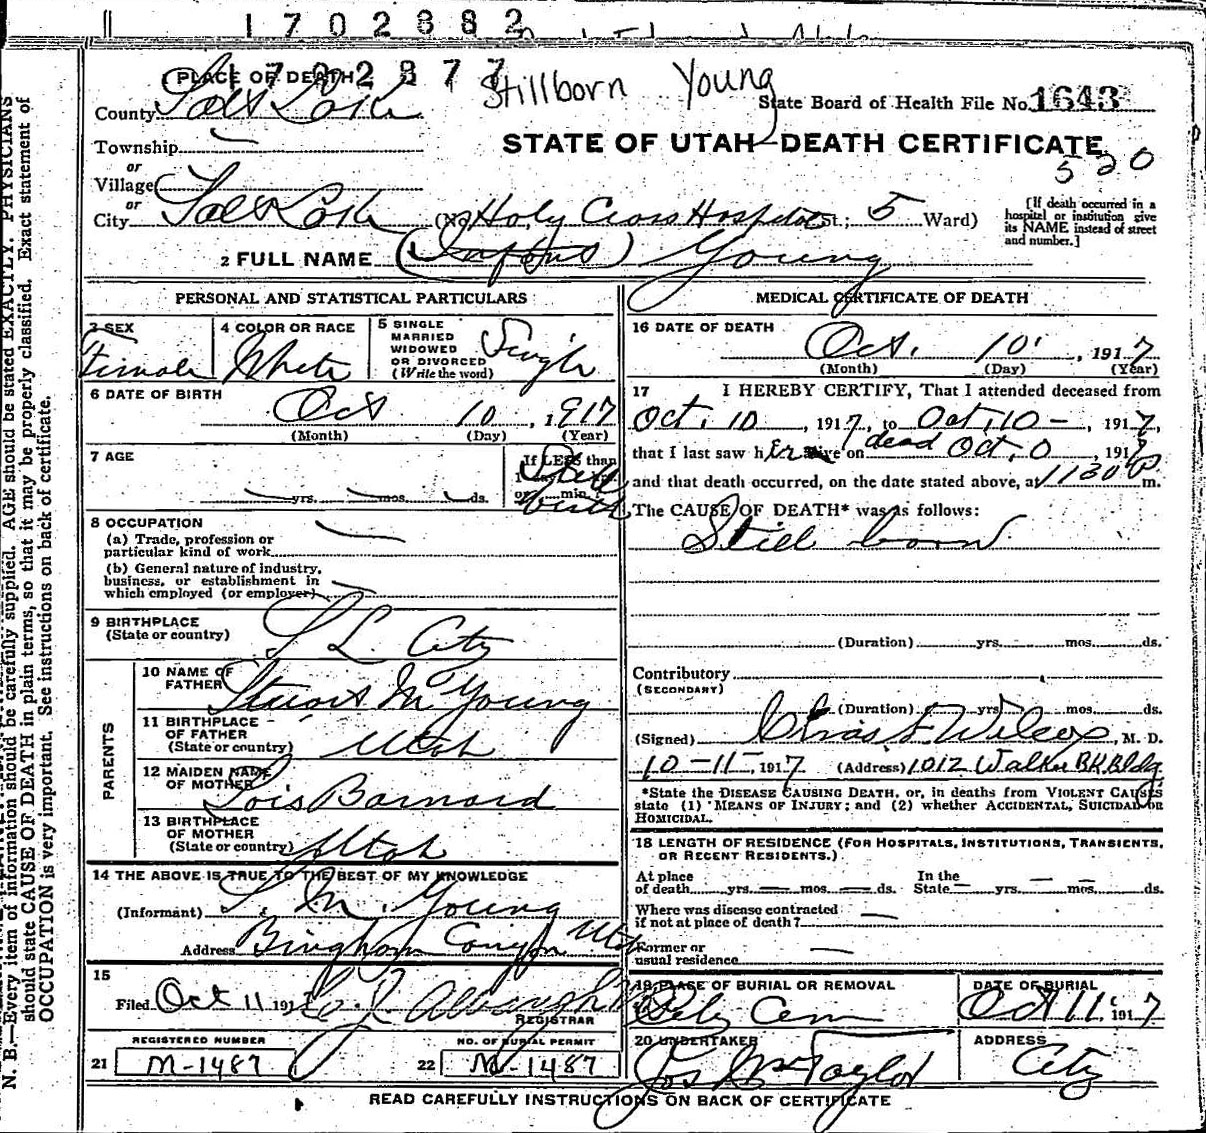 1702882
1702877
Stillborn Young
PLACE OF DEATH
County Salt Lake
State Board of Health File No. 1643
Township
STATE OF UTAH—DEATH CERTIFICATE
or
Village
520
or
City Salt Lake (No. Holy Cross Hospital St.; 5 Ward)
[If death occurred in a hospital or institution give its NAME instead of street and number.]
2 FULL NAME ( ) Young
PERSONAL AND STATISTICAL PARTICULARS
3 SEX
Female
4 COLOR OR RACE
White
5 SINGLE
MARRIED
WIDOWED
OR DIVORCED
(Write the word)
Single
6 DATE OF BIRTH
Oct 10, 1917
(Month) (Day) (Year)
7 AGE
If LESS than
yrs. mos. ds.
or min.?
Still
birth
8 OCCUPATION
(a) Trade, profession or
particular kind of work
(b) General nature of industry,
business, or establishment in
which employed (or employer)
9 BIRTHPLACE
(State or country)
S L City
PARENTS
10 NAME OF
FATHER
Stuart M Young
11 BIRTHPLACE
OF FATHER
(State or country)
Utah
12 MAIDEN NAME
OF MOTHER
Lois Barnard
13 BIRTHPLACE
OF MOTHER
(State or country)
Utah
14 THE ABOVE IS TRUE TO THE BEST OF MY KNOWLEDGE
(Informant) S. M. Young
Address Bingham Canyon Utah
15
Filed Oct 11 191
REGISTRAR
REGISTERED NUMBER
21 M-1487
NO. OF BURIAL PERMIT
22 M-1487
MEDICAL CERTIFICATE OF DEATH
16 DATE OF DEATH
Oct. 10, 1917
(Month) (Day) (Year)
17 I HEREBY CERTIFY, That I attended deceased from
Oct. 10, 1917, to Oct. 10 -, 1917,
that I last saw her alive on dead Oct. 0, 1917
and that death occurred, on the date stated above, at 1130 P m.
The CAUSE OF DEATH* was as follows:
Still born
(Duration) yrs. mos. ds.
Contributory
(SECONDARY)
(Duration) yrs. mos. ds.
(Signed) Chas F Wilcox, M. D.
10-11-, 1917 (Address) 1012 Walker BK. Bldg
*State the DISEASE CAUSING DEATH, or, in deaths from VIOLENT CAUSES
state (1) MEANS OF INJURY; and (2) whether ACCIDENTAL, SUICIDAL OR
HOMICIDAL.
18 LENGTH OF RESIDENCE (FOR HOSPITALS, INSTITUTIONS, TRANSIENTS,
OR RECENT RESIDENTS.)
At place In the
of death yrs. mos. ds. State yrs. mos. ds.
Where was disease contracted
if not at place of death?
Former or
usual residence
19 PLACE OF BURIAL OR REMOVAL
City Cem
DATE OF BURIAL
Oct 11, 1917
20 UNDERTAKER
Jos Wm Taylor
ADDRESS
City
READ CAREFULLY INSTRUCTIONS ON BACK OF CERTIFICATE
N. B.—Every item of information should be carefully supplied. AGE should be stated EXACTLY. PHYSICIANS
should state CAUSE OF DEATH in plain terms, so that it may be properly classified. Exact statement of
OCCUPATION is very important. See instructions on back of certificate.